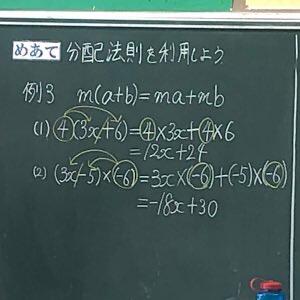 めあて 分配法則を利用しよう
例3 m(a+b)=ma+mb
(1) 4(3x+6)=4×3x+4×6
=12x+24
(2) (3x-5)×(-6)=3x×(-6)+(-5)×(-6)
=-18x+30